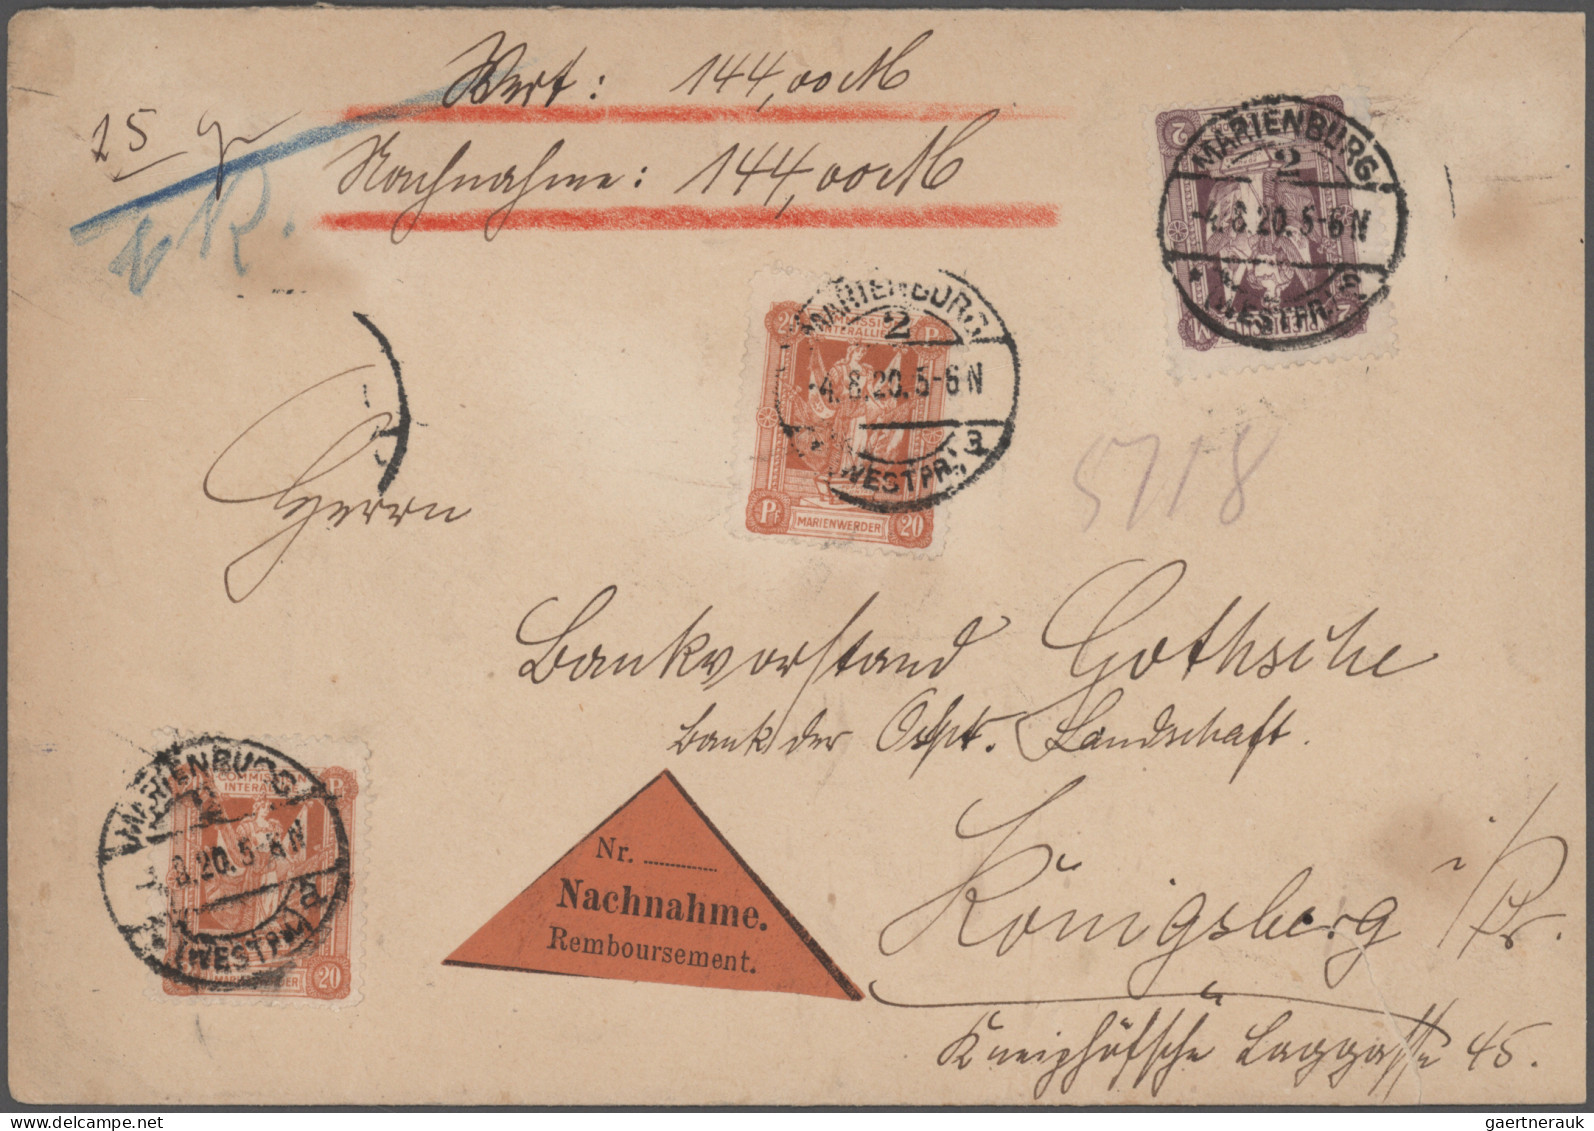 Wert: 144,00 M
25 g
Nachnahme: 144,00 M
MARIENBURG
2
-4.8.20.5-6N
(WESTPR.)
2
2
M
MARIENBURG
2
-4.8.20.5-6N
(WESTPR.)
COMMISSION
INTERALLIÉE
20 Pf
Pf MARIENWERDER 20
5718
Herrn
Bankvorstand Gothsche
Bank der Ostpr. Landschaft.
MARIENBURG
8.20.5-6N
(WESTPR.)
COMMISSION
INTERALLIÉE
MARIENWERDER 20
Nr.
Nachnahme.
Remboursement.
Königsberg i/Pr.
Kneiphöfsche Langgasse 45.
gaertnerauk